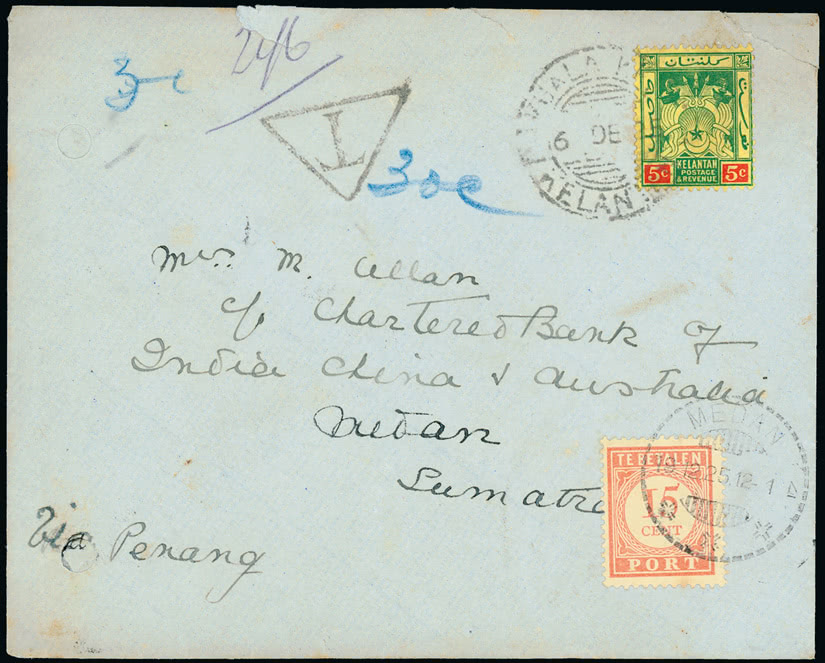 3c
24/6
T
30c
KUALA K
6 DE
KELAN
كلنتن
KELANTAN
POSTAGE
& REVENUE
5c 5c
Mrs. M. Allan
c/o Chartered Bank of
India China & Australia
Medan
Sumatra
Via Penang
TE BETALEN
15
CENT
PORT
MEDAN
13.12.25.12-1